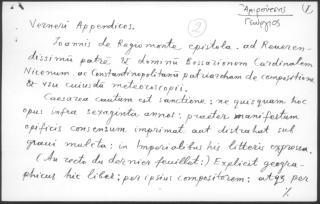 Ἀμιρούτσης
Γεώργιος
1
2
Verneri Appendices.
Ioannis de Regiomonte epistola. ad Reveren-
dissimū patrē & dominū Bessarionem Cardinalem
Nicenum. ac Constantinopolitanū patriarcham de compositione
& usu cuiusdā meteoroscopii.
Caesarea cautum est sanctione: ne quisquam hoc
opus infra sexaginta annos: praeter manifestum
opificis consensum imprimat aut distrahat sub
gravi mulcta: in Imperialibus his litteris expressa.
(Au recto du dernier feuillet:) Explicit geogra-
phicus hic liber: per ipsius compositorem: atqz per
%